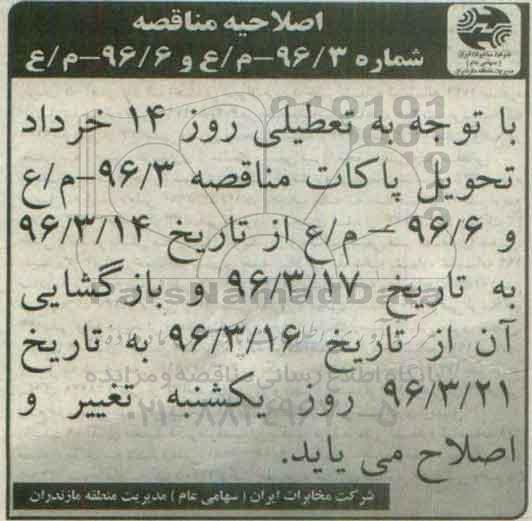 اصلاحیه مناقصه
شماره ۹۶/۳-م/ع و ۹۶/۶-م/ع
با توجه به تعطیلی روز ۱۴ خرداد
تحویل پاکات مناقصه ۹۶/۳-م/ع
و ۹۶/۶ – م/ع از تاریخ ۹۶/۳/۱۴
به تاریخ ۹۶/۳/۱۷ و بازگشایی
آن از تاریخ ۹۶/۳/۱۶ به تاریخ
۹۶/۳/۲۱ روز یکشنبه تغییر و
اصلاح می یابد.
شرکت مخابرات ایران (سهامی عام) مدیریت منطقه مازندران
ParsNamadData
پایگاه اطلاع رسانی مناقصه و مزایده